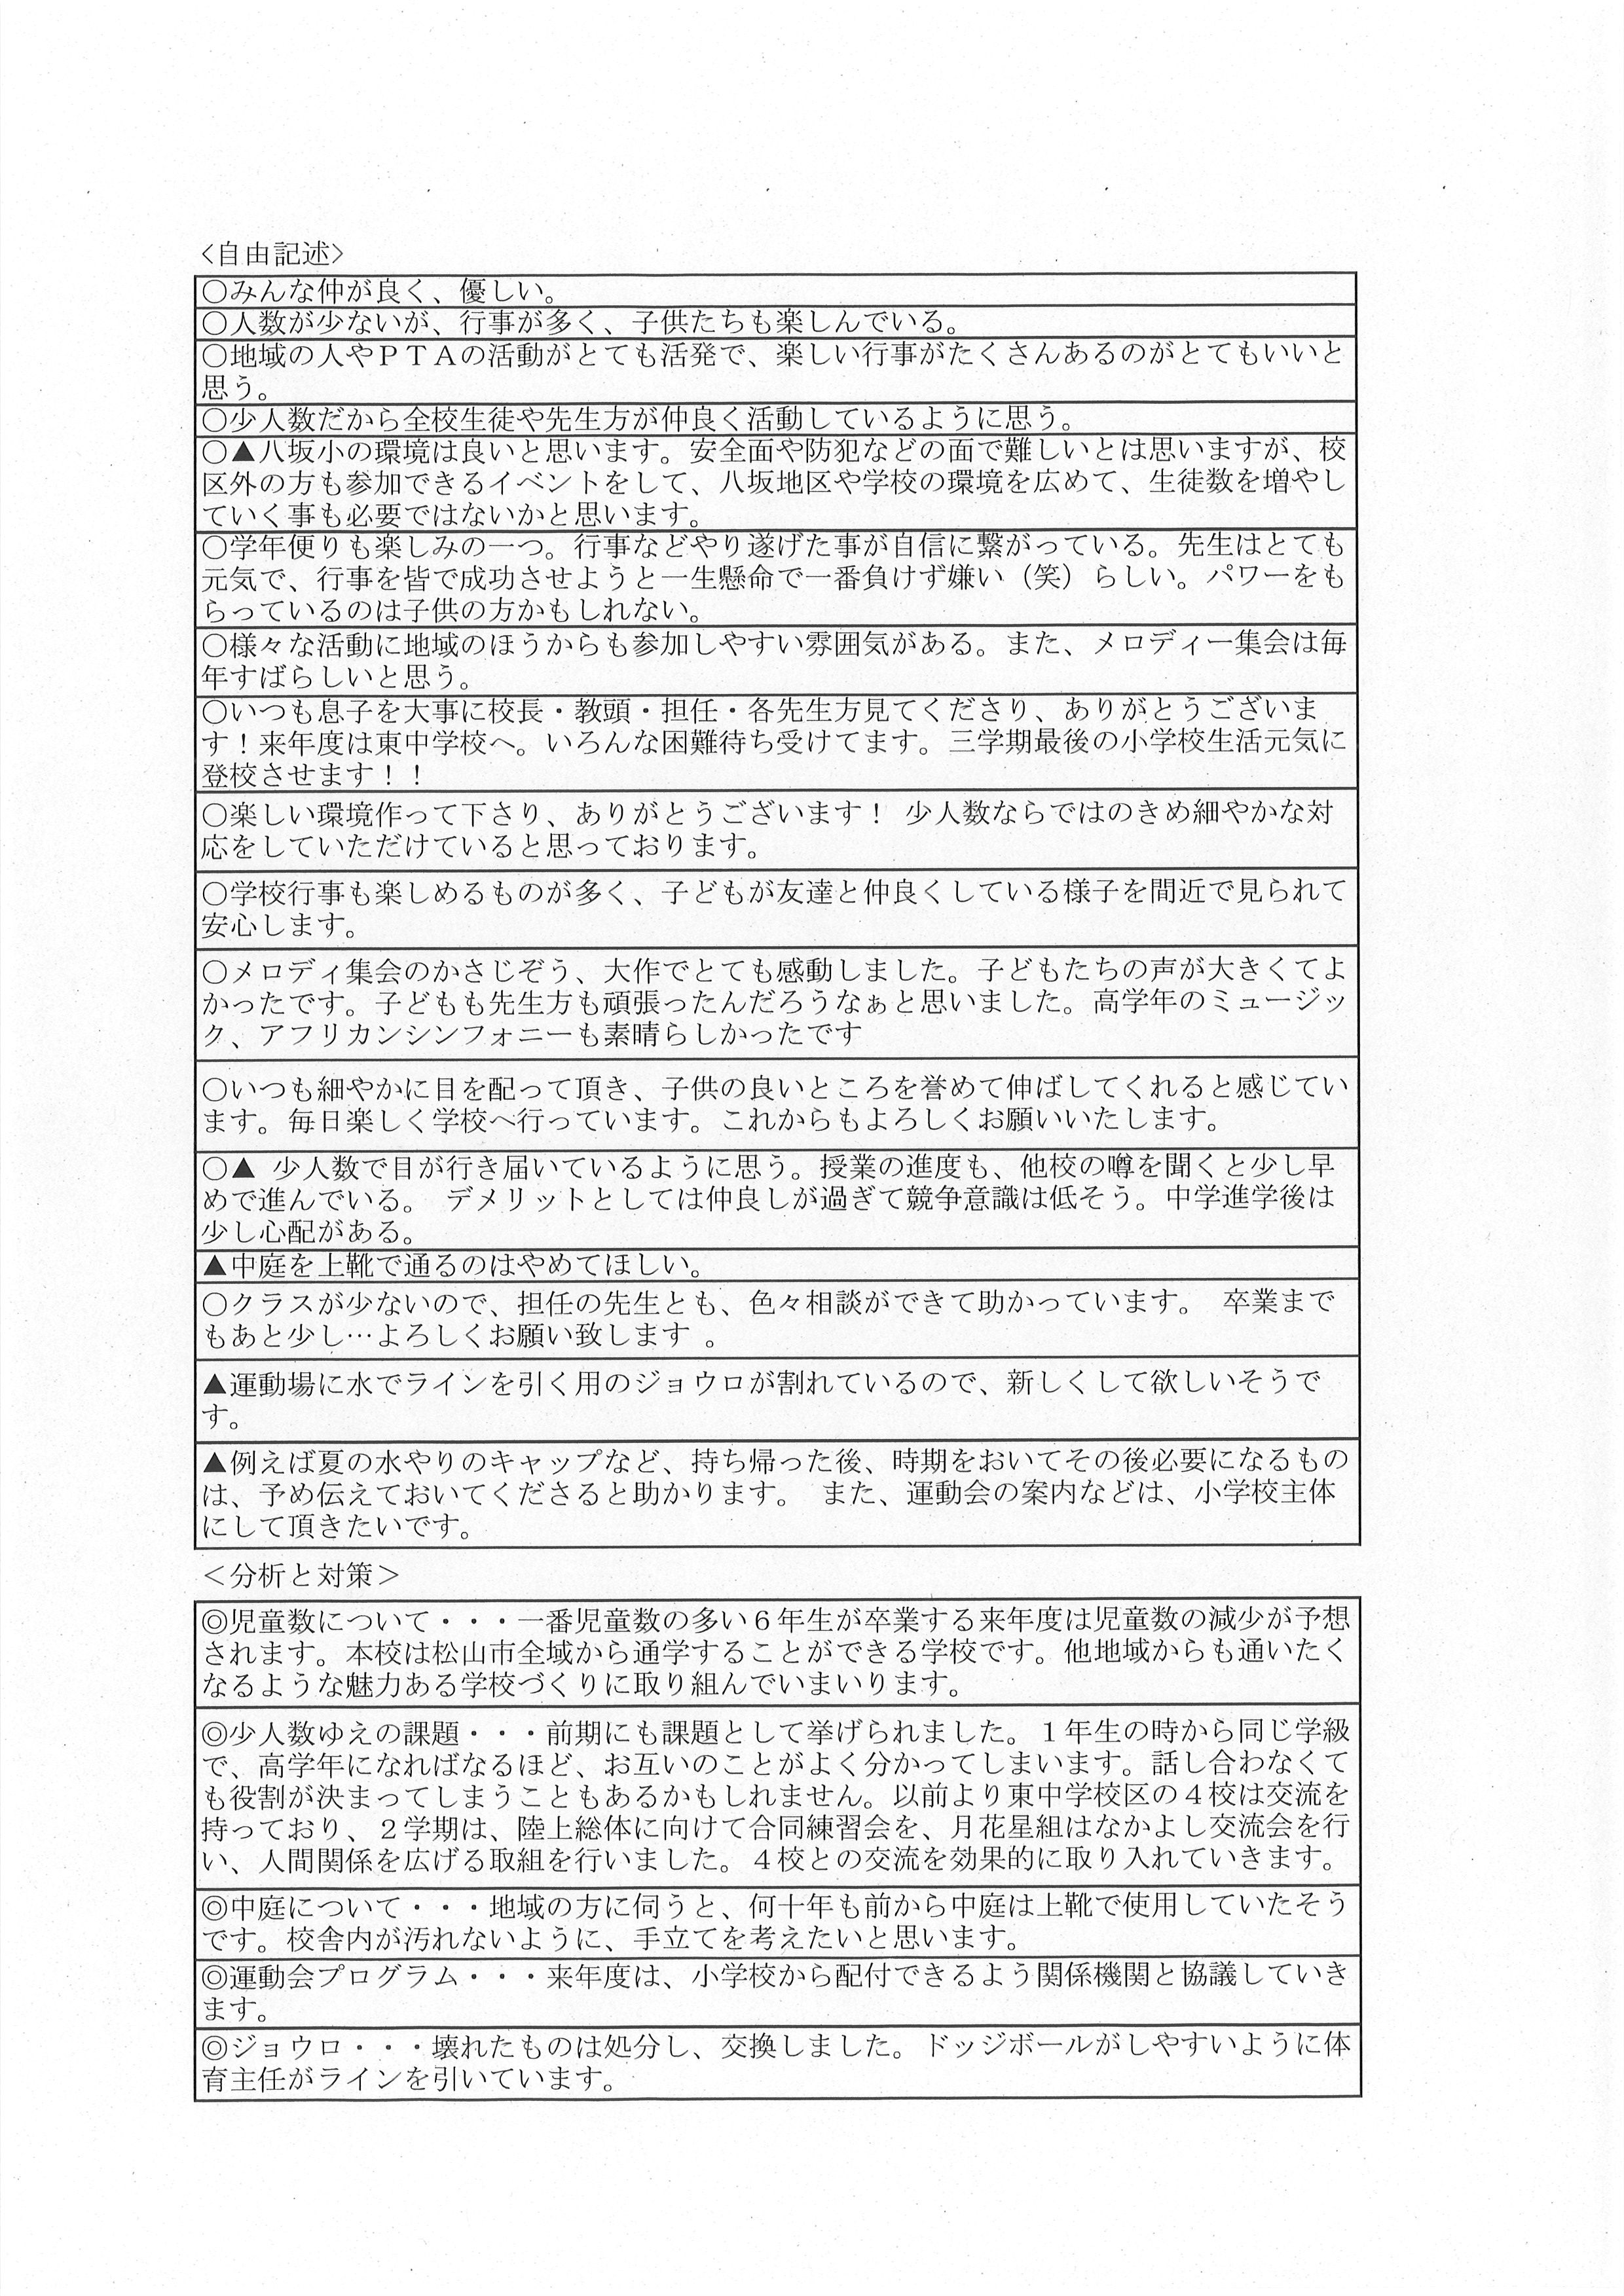 <自由記述>
○みんな仲が良く、優しい。
○人数が少ないが、行事が多く、子供たちも楽しんでいる。
○地域の人やＰＴＡの活動がとても活発で、楽しい行事がたくさんあるのがとてもいいと
思う。
○少人数だから全校生徒や先生方が仲良く活動しているように思う。
○▲八坂小の環境は良いと思います。安全面や防犯などの面で難しいとは思いますが、校
区外の方も参加できるイベントをして、八坂地区や学校の環境を広めて、生徒数を増やし
ていく事も必要ではないかと思います。
○学年便りも楽しみの一つ。行事などやり遂げた事が自信に繋がっている。先生はとても
元気で、行事を皆で成功させようと一生懸命で一番負けず嫌い（笑）らしい。パワーをも
らっているのは子供の方かもしれない。
○様々な活動に地域のほうからも参加しやすい雰囲気がある。また、メロディー集会は毎
年すばらしいと思う。
○いつも息子を大事に校長・教頭・担任・各先生方見てくださり、ありがとうございま
す！来年度は東中学校へ。いろんな困難待ち受けてます。三学期最後の小学校生活元気に
登校させます！！
○楽しい環境作って下さり、ありがとうございます！ 少人数ならではのきめ細やかな対
応をしていただけていると思っております。
○学校行事も楽しめるものが多く、子どもが友達と仲良くしている様子を間近で見られて
安心します。
○メロディ集会のかさじぞう、大作でとても感動しました。子どもたちの声が大きくてよ
かったです。子どもも先生方も頑張ったんだろうなぁと思いました。高学年のミュージッ
ク、アフリカンシンフォニーも素晴らしかったです
○いつも細やかに目を配って頂き、子供の良いところを誉めて伸ばしてくれると感じてい
ます。毎日楽しく学校へ行っています。これからもよろしくお願いいたします。
○▲ 少人数で目が行き届いているように思う。授業の進度も、他校の噂を聞くと少し早
めで進んでいる。 デメリットとしては仲良しが過ぎて競争意識は低そう。中学進学後は
少し心配がある。
▲中庭を上靴で通るのはやめてほしい。
○クラスが少ないので、担任の先生とも、色々相談ができて助かっています。 卒業まで
もあと少し…よろしくお願い致します 。
▲運動場に水でラインを引く用のジョウロが割れているので、新しくして欲しいそうで
す。
▲例えば夏の水やりのキャップなど、持ち帰った後、時期をおいてその後必要になるもの
は、予め伝えておいてくださると助かります。 また、運動会の案内などは、小学校主体
にして頂きたいです。
＜分析と対策＞
◎児童数について・・・一番児童数の多い６年生が卒業する来年度は児童数の減少が予想
されます。本校は松山市全域から通学することができる学校です。他地域からも通いたく
なるような魅力ある学校づくりに取り組んでいまいります。
◎少人数ゆえの課題・・・前期にも課題として挙げられました。１年生の時から同じ学級
で、高学年になればなるほど、お互いのことがよく分かってしまいます。話し合わなくて
も役割が決まってしまうこともあるかもしれません。以前より東中学校区の４校は交流を
持っており、２学期は、陸上総体に向けて合同練習会を、月花星組はなかよし交流会を行
い、人間関係を広げる取組を行いました。４校との交流を効果的に取り入れていきます。
◎中庭について・・・地域の方に伺うと、何十年も前から中庭は上靴で使用していたそう
です。校舎内が汚れないように、手立てを考えたいと思います。
◎運動会プログラム・・・来年度は、小学校から配付できるよう関係機関と協議していき
ます。
◎ジョウロ・・・壊れたものは処分し、交換しました。ドッジボールがしやすいように体
育主任がラインを引いています。